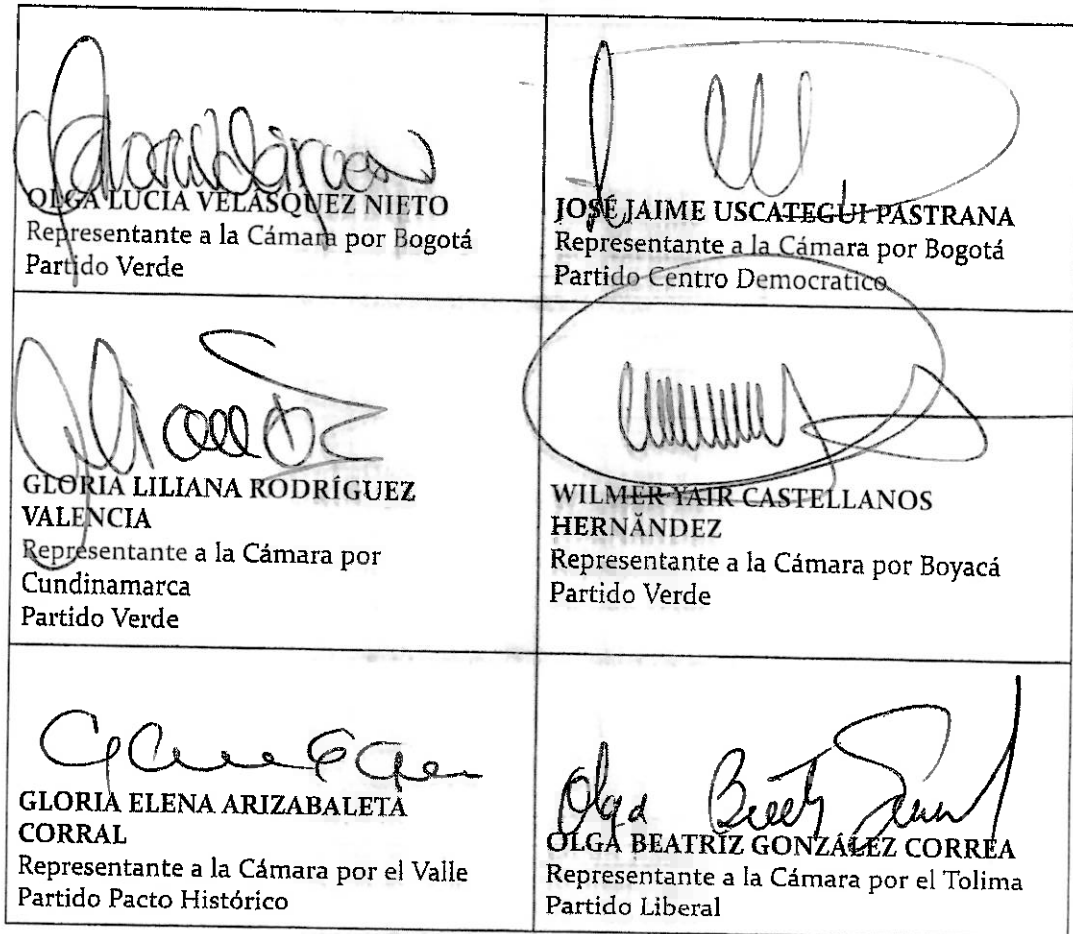 OLGA LUCIA VELASQUEZ NIETO
Representante a la Cámara por Bogotá
Partido Verde
JOSÉ JAIME USCATEGUI PASTRANA
Representante a la Cámara por Bogotá
Partido Centro Democratico
GLORIA LILIANA RODRÍGUEZ
VALENCIA
Representante a la Cámara por
Cundinamarca
Partido Verde
WILMER YAIR CASTELLANOS
HERNÃNDEZ
Representante a la Cámara por Boyacá
Partido Verde
GLORIA ELENA ARIZABALETA
CORRAL
Representante a la Cámara por el Valle
Partido Pacto Histórico
Olga Beatriz
OLGA BEATRIZ GONZÁLEZ CORREA
Representante a la Cámara por el Tolima
Partido Liberal